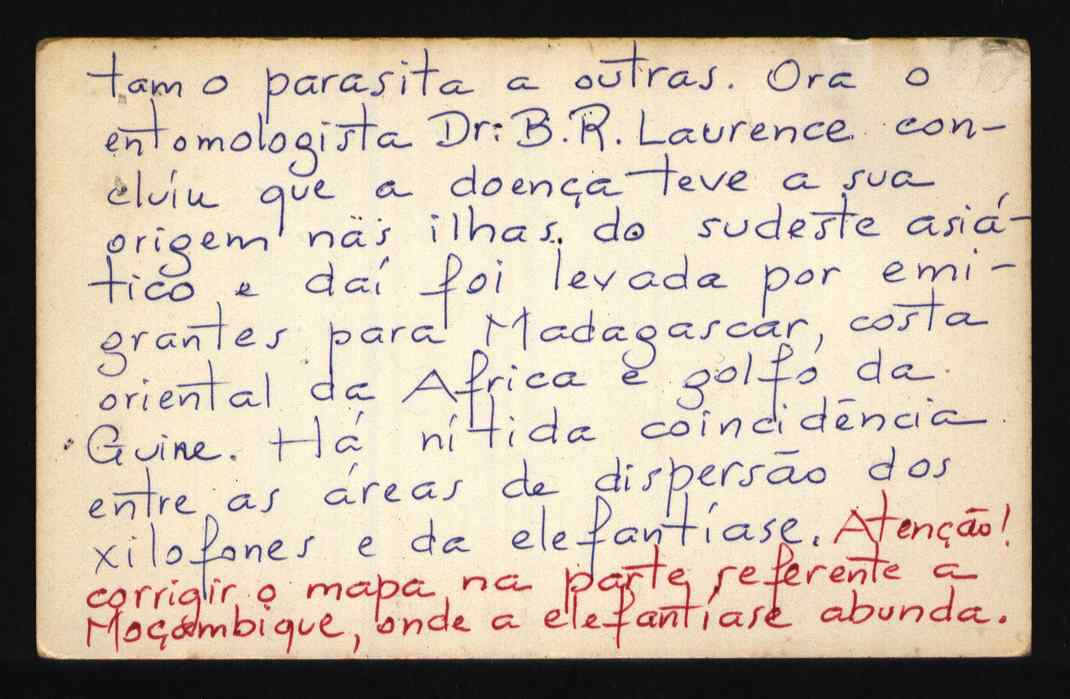 tam o parasita a outras. Ora o
entomologista Dr. B.R. Laurence con-
cluíu que a doença teve a sua
origem nas ilhas do sudeste asiá-
tico e daí foi levada por emi-
grantes para Madagascar, costa
oriental da Africa e golfo da
Guine. Há nítida coincidência
entre as áreas de dispersão dos
xilofones e da elefantíase. Atenção!
corrigir o mapa na parte referente a
Moçambique, onde a elefantíase abunda.